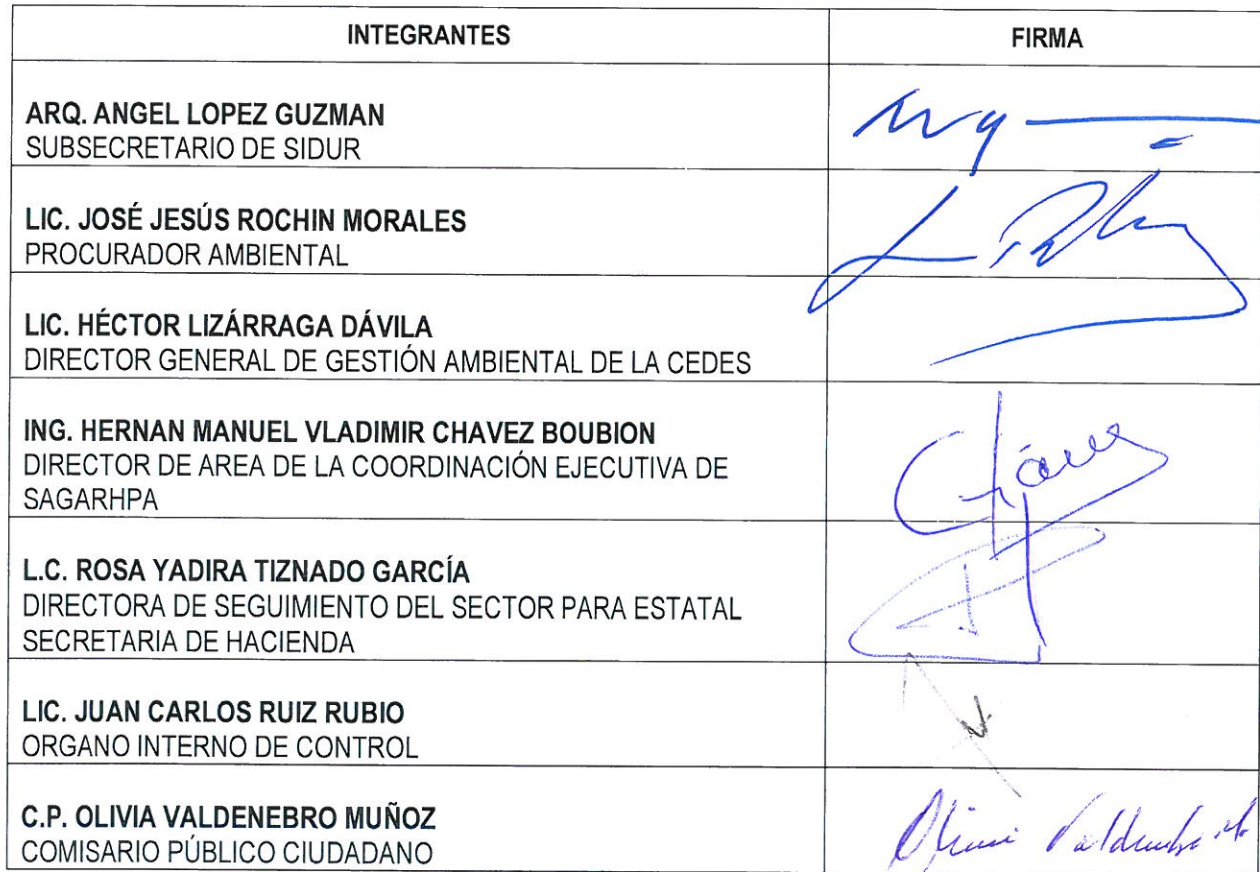 INTEGRANTES
FIRMA
ARQ. ANGEL LOPEZ GUZMAN
SUBSECRETARIO DE SIDUR
LIC. JOSÉ JESÚS ROCHIN MORALES
PROCURADOR AMBIENTAL
LIC. HÉCTOR LIZÁRRAGA DÁVILA
DIRECTOR GENERAL DE GESTIÓN AMBIENTAL DE LA CEDES
ING. HERNAN MANUEL VLADIMIR CHAVEZ BOUBION
DIRECTOR DE AREA DE LA COORDINACIÓN EJECUTIVA DE
SAGARHPA
Chávez
L.C. ROSA YADIRA TIZNADO GARCÍA
DIRECTORA DE SEGUIMIENTO DEL SECTOR PARA ESTATAL
SECRETARIA DE HACIENDA
LIC. JUAN CARLOS RUIZ RUBIO
ORGANO INTERNO DE CONTROL
C.P. OLIVIA VALDENEBRO MUÑOZ
COMISARIO PÚBLICO CIUDADANO
Olivia Valdenebro M